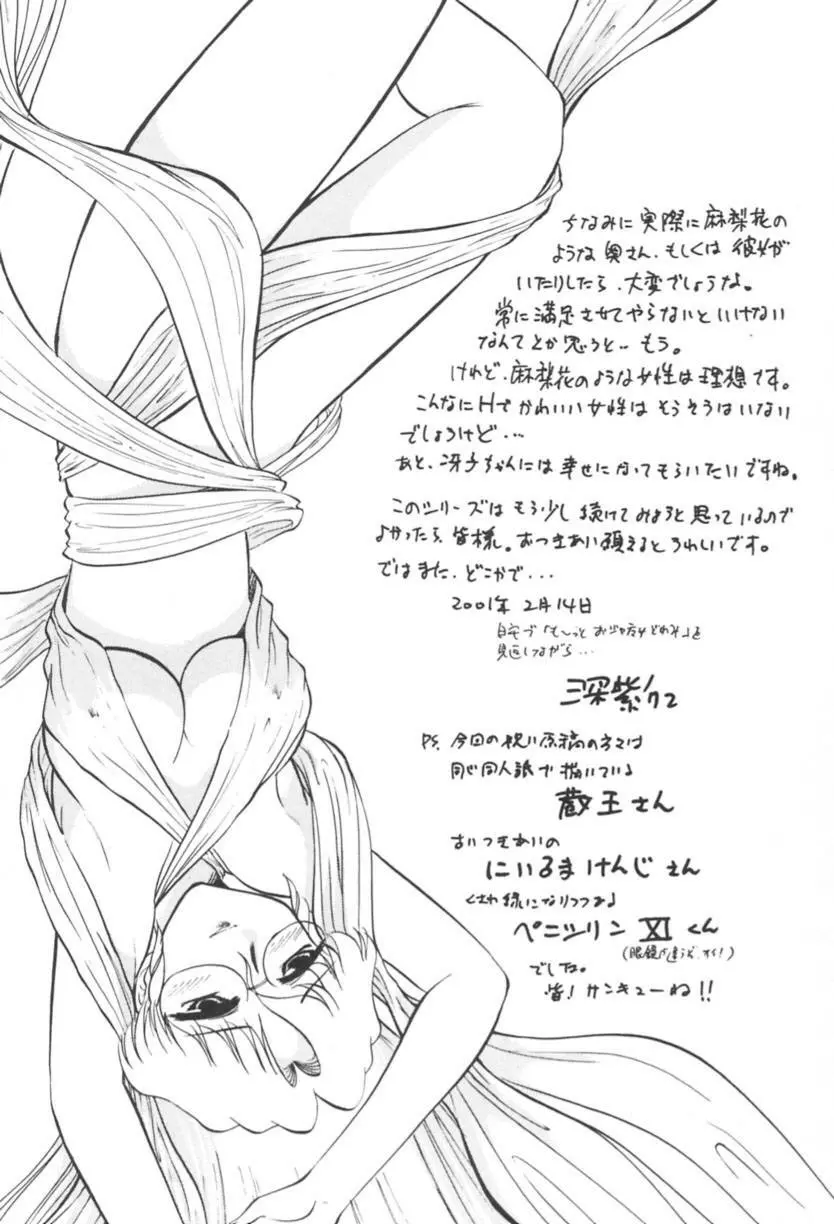 ちなみに実際に麻梨花の
ような奥さん、もしくは彼女が
いたりしたら、大変でしょうな。
常に満足させてやらないといけない
なんてとか思うと‥もう。
けれど、麻梨花のような女性は理想です。
こんなにHでかわいい女性はそうそうはいない
でしょうけど・・・
あと、冴子ちゃんには幸せになってもらいたいですね。
このシリーズはもう少し続けてみようと思っているので
よかったら、皆様。おつきあい願えるとうれしいです。
ではまた、どこかで・・・
2001年 2月14日
自宅で「も〜っと おジャ魔女どれみ」を
見返しながら・・・
深紫
PS. 今回の祝い原稿の方々は
同じ同人誌で描いている
蔵王さん
おいつきあいの
にいるまけんじさん
くされ縁になりつつある
ペニシリンXIくん
(眼鏡が違うぞ、オイ!)
でしたね。
皆!サンキューね!!